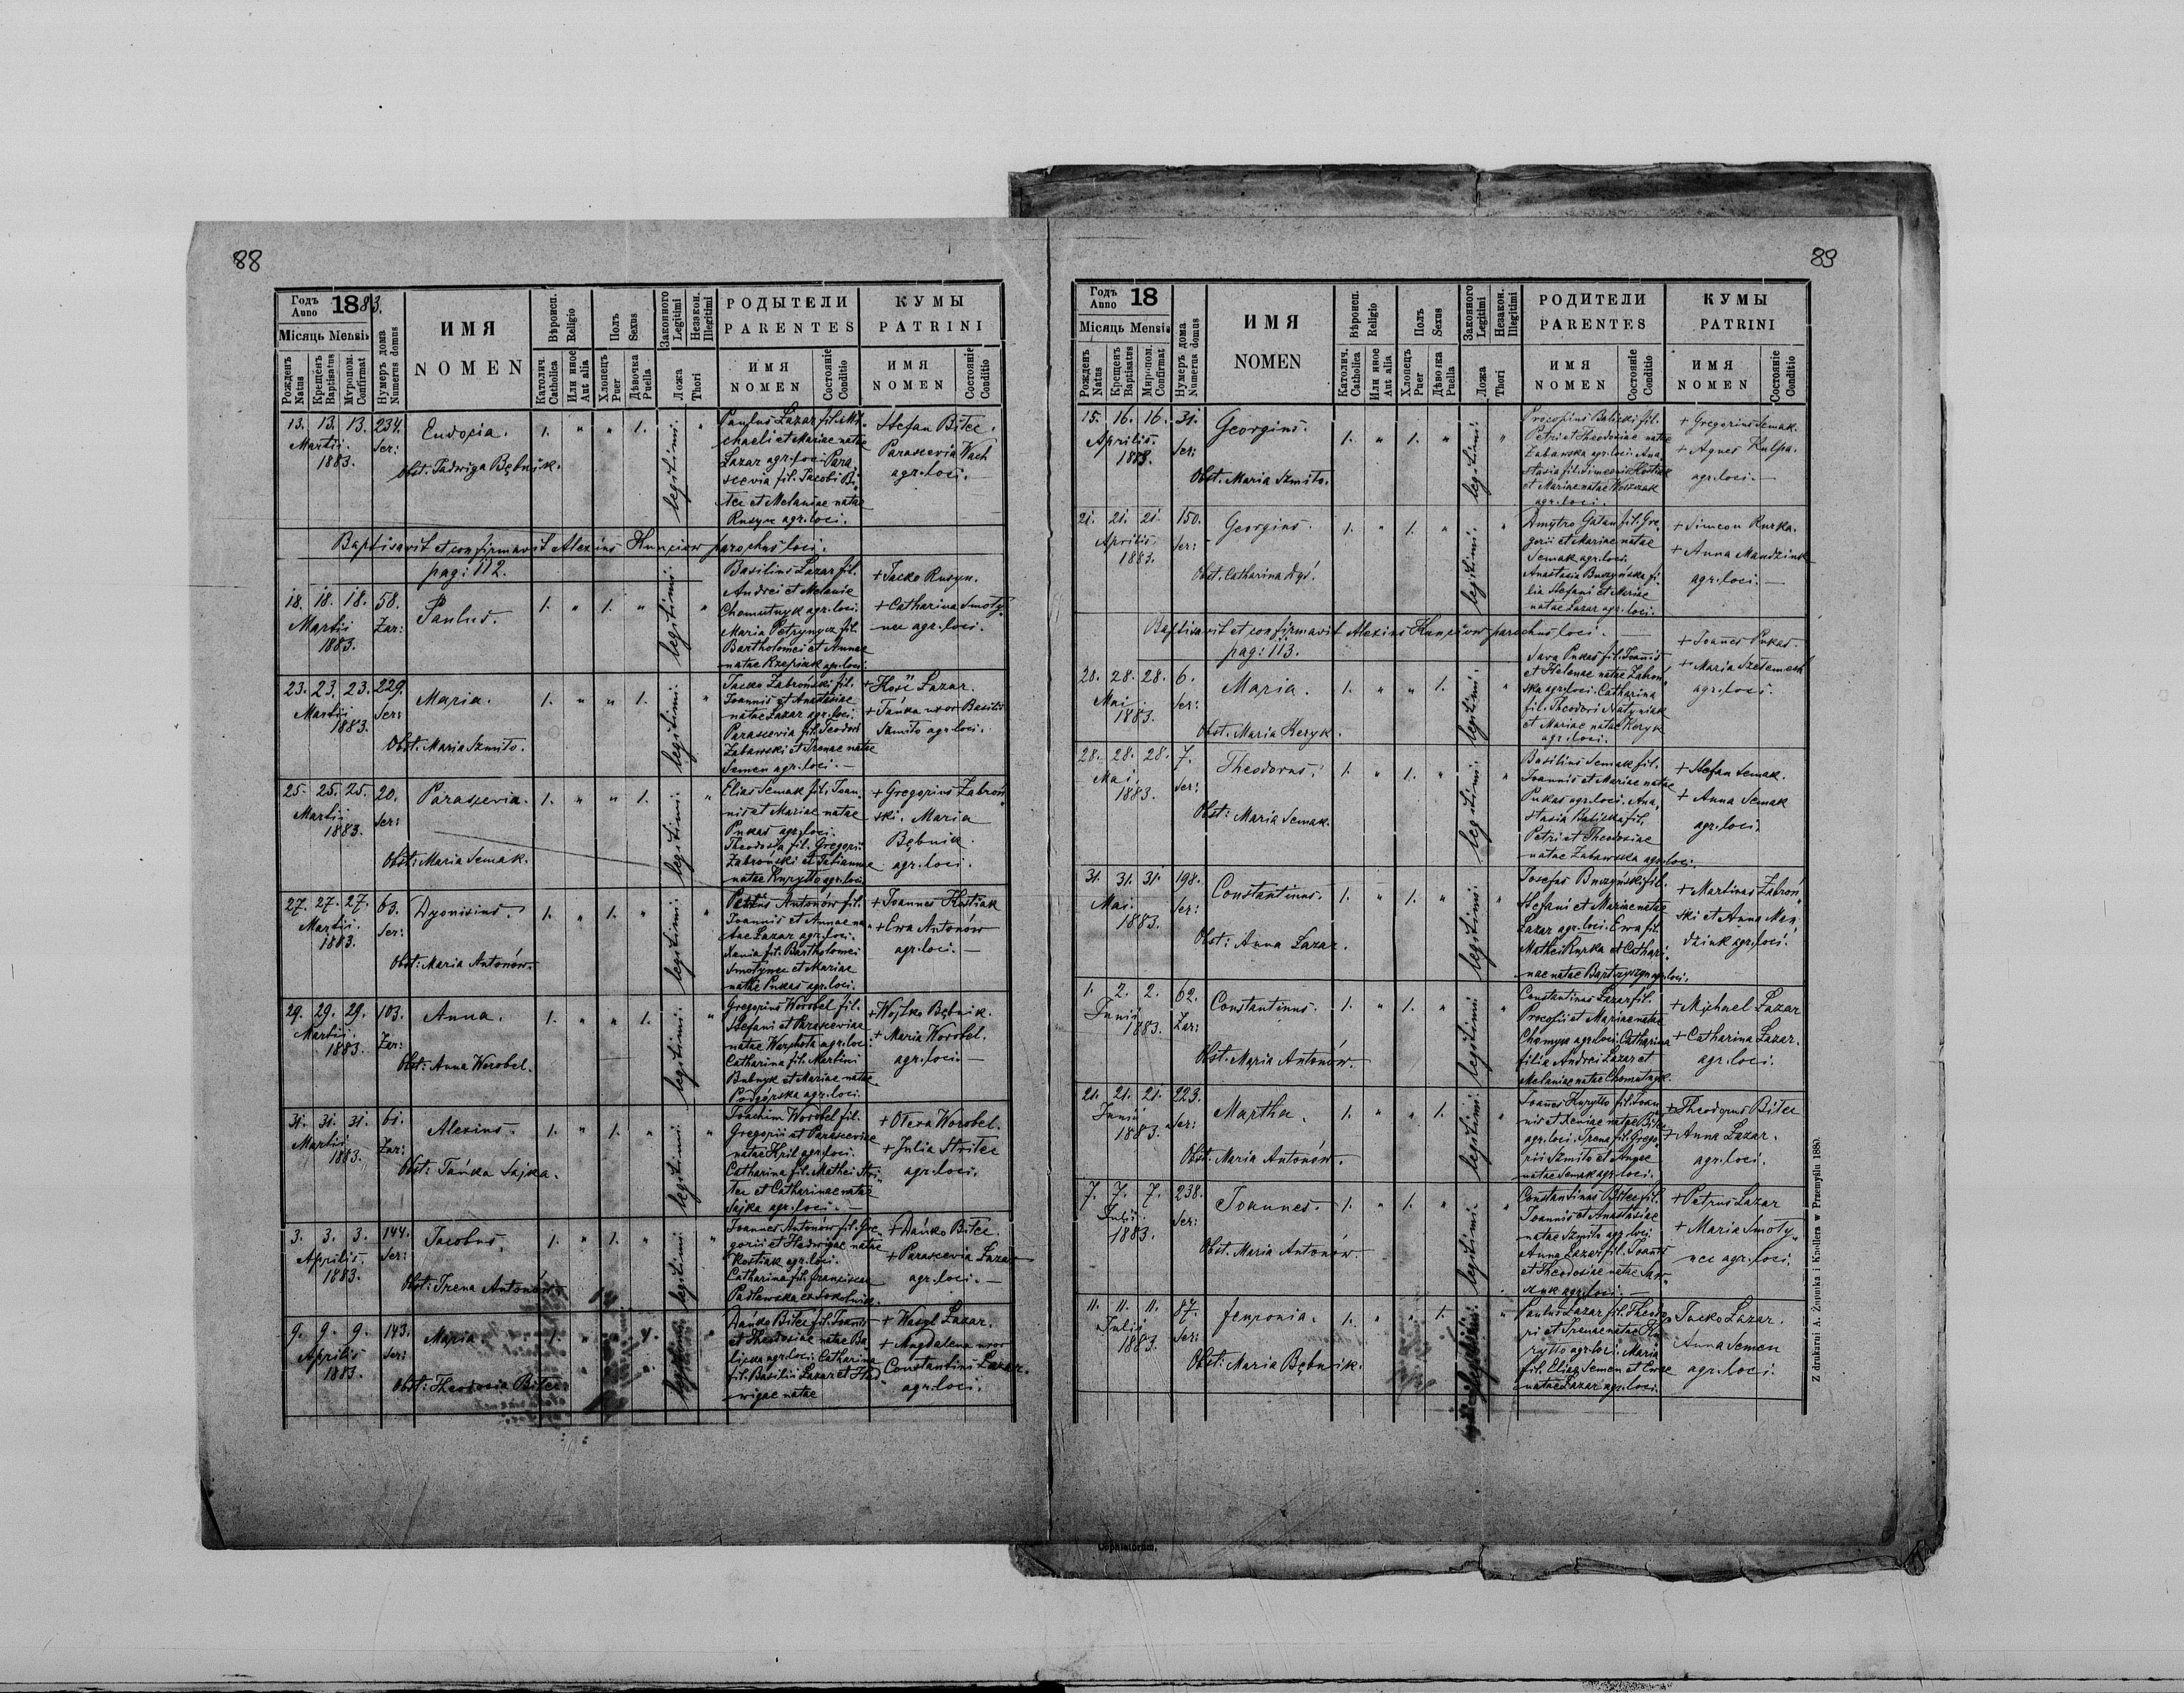 88
Годъ Anno 1883.
Місяць Mensis
Рожденъ Natus
Крещенъ Baptisatus
Мѵропом. Confirmat
Нумеръ дома Numerus domus
ИМЯ
NOMEN
Вѣроисп. Religio
Католич. Catholica
Или иное Aut alia
Полъ Sexus
Хлопецъ Puer
Дѣвочка Puella
Законного Legitimi
Незакон. Illegitimi
Ложа Thori
РОДЫТЕЛИ
PARENTES
ИМЯ NOMEN
Состояніе Conditio
КУМЫ
PATRINI
ИМЯ NOMEN
Состояніе Conditio
13. 13. 13. 234.
Martii Ser:
1883.
Eudocia. 1. " " 1. legitimi. "
Obst. Jadwiga Bębnik.
Paulus Lazar fil. Mi-
chaeli et Mariae natae
Lazar agr. loci. Para
scevia fil. Jacobi Bi„
tec et Melaniae natae
Rusyn agr. loci.
Stefan Bitec.
Parascevia Wach
agr. loci.
Baptisavit et confirmavit Alexius Hunciow parochus loci.
pag: 112.
18. 18. 18. 58.
Martii Zar:
1883.
Paulus. 1. " 1. " legitimi. "
Basilius Lazar fil.
Andrei et Melanie
Chomutnyk agr. loci.
Maria Petrynycz fil.
Bartholomei et Annae
natae Rzepiak agr. loci.
+ Jacko Rusyn.
+ Catharina Smoty„
nec agr. loci.
23. 23. 23. 229.
Martii Ser:
1883.
Maria. 1. " " 1. legitimi. "
Obst. Maria Szmito.
Jacko Zabroński fil.
Joannis et Anastasiae
natae Lazar agr. loci.
Parascevia fil. Teodori
Zabawski et Irenae natae
Semen agr. loci.
+ Kość Lazar.
+ Tańka uxor Basilii
Szmito agr. loci.
25. 25. 25. 20.
Martii Ser:
1883.
Parascevia. 1. " " 1. legitimi. "
Obst: Maria Semak.
Elias Semak fil. Joan„
nis et Mariae natae
Pukas agr. loci.
Theodosia fil. Gregorii
Zabronski et Tatiannae
natae Kuryłło agr. loci.
+ Gregorius Zabroń
ski. Maria
Bębnik.
agr. loci.
27. 27. 27. 63.
Martii. Ser:
1883.
Dyonisius. 1. " 1. " legitimi. "
Obst: Maria Antonów.
Petrus Antonów fil.
Joannis et Annae na„
tae Lazar agr. loci.
Xenia fil. Bartholomei
Smotynec et Mariae
natae Pukas agr. loci.
+ Joannes Kostiak
+ Ewa Antonów
agr. loci.
29. 29. 29. 103.
Martii. Zar:
1883.
Anna. 1. " " 1. legitimi. "
Obst: Anna Worobel.
Gregorius Worobel fil.
Stefani et Parasceviae
natae Warchola agr. loci
Catharina fil. Martini
Bubnyk et Mariae natae
Podgórska agr. loci.
+ Wojtko Bębnik.
+ Maria Worobel.
agr. loci.
31. 31. 31. 61.
Martii Zar:
1883.
Alexius. 1. " 1. " legitimi. "
Obst: Tańka Sajka.
Joachim Worobel fil.
Gregorii et Parasceviae
natae Kril agr. loci.
Catharina fil. Mathei Stri„
tec et Catharinae natae
Sajka agr. loci.
+ Olexa Worobel.
+ Julia Stritec
agr. loci.
3. 3. 3. 144.
Aprilis. Ser:
1883.
Jacobus. 1. " 1. " legitimi. "
Obst: Irena Antonów.
Joannes Antonów fil. Gre„
gorii et Hedwigae natae
Kostiak agr. loci.
Catharina fil. Franciscae
Padlewska ex Sokolnik.
+ Dańko Bitec.
+ Parascevia Lazar
agr. loci.
9. 9. 9. 143.
Aprilis Ser:
1883.
Maria 1. " " 1. legitimi. "
Obst: Theodosia Bitec
Dańko Bitec fil. Joannis
et Theodosiae natae Ba
licka agr. loci. Catharina
fil. Basilii Lazar et Hed
wigae natae
+ Wasyl Lazar.
+ Magdalena uxor
Constantini Lazar.
agr. loci.
89
Годъ Anno 18
Місяць Mensis
Рожденъ Natus
Крещенъ Baptisatus
Миропом. Confirmat
Нумеръ дома Numerus domus
ИМЯ
NOMEN
Вѣроисп. Religio
Католич. Catholica
Или иное Aut alia
Полъ Sexus
Хлопецъ Puer
Дѣвочка Puella
Законного Legitimi
Незакон. Illegitimi
Ложа Thori
РОДИТЕЛИ
PARENTES
ИМЯ NOMEN
Состояніе Conditio
КУМЫ
PATRINI
ИМЯ NOMEN
Состояніе Conditio
15. 16. 16. 31.
Aprilis. Ser:
1883.
Georgius. 1. " 1. " legitimi. "
Obst. Maria Szmito.
Procopius Balicki fil.
Petri et Theodosiae natae
Zabawska agr. loci. Ana„
stasia fil. Simeoni Kostiak
et Mariae natae
agr. loci.
+ Gregorius Semak.
+ Agnes Kulpa.
agr. loci.
21. 21. 21. 150.
Aprilis. Ser:
1883.
Georgius. 1. " 1. " legitimi. "
Obst. Catharina Dyś.
Dmytro Gatan fil. Gre„
gorii et Mariae natae
Semak agr. loci.
Anastasia Buczyńska fi„
lia Stefani et Mariae
natae Lazar agr. loci.
+ Simeon Rurka.
+ Anna Mandziuk
agr. loci.
Baptisavit et confirmavit Alexius Hunciow parochus loci.
pag: 113.
28. 28. 28. 6.
Mai Ser:
1883.
Maria. 1. " " 1. legitimi. "
Obst. Maria Keryk.
Sava Pukas fil. Joannis
et Helenae natae Zabroń
ska agr. loci. Catharina
fil. Theodori Natyniak
et Mariae natae Keryk
agr. loci.
+ Joannes Pukas.
+ Maria Szelemech
agr. loci.
28. 28. 28. 7.
Mai. Ser:
1883.
Theodorus. 1. " 1. " legitimi. "
Obst: Maria Semak.
Basilius Semak fil.
Joannis et Mariae natae
Pukas agr. loci. Ana„
stasia Balicka fil.
Petri et Theodosiae
natae Zabawska agr. loci.
+ Stefan Semak.
+ Anna Semak
agr. loci.
31. 31. 31. 198.
Mai. Ser:
1883.
Constantinus. 1. " 1. " legitimi. "
Obst: Anna Lazar.
Josefus Buczyński fil.
Stefani et Mariae natae
Lazar agr. loci. Ewa fil.
Mathei Rurka et Cathari„
nae natae agr. loci.
+ Martinus Zabroń„
ski et Anna Man„
dziuk agr. loci.
1. 2. 2. 62.
Junii Zar:
1883.
Constantinus. 1. " 1. " legitimi "
Obst. Maria Antonów.
Constantinus Lazar fil.
Procopii et Mariae natae
Chomyca agr. loci. Catharina
filia Andrei Lazar et
Melaniae natae Chomutnyk.
+ Michael Lazar
+ Catharina Lazar.
agr. loci.
21. 21. 21. 223.
Junii Ser:
1883.
Martha. 1. " " 1. legitimi. "
Obst. Maria Antonów.
Joannes Kyryłło fil. Joan
nis et Xeniae natae Bitec
agr. loci. Irena fil. Grego
rii Szmito et Annae
natae Semak agr. loci.
+ Theodorus Bitec
+ Anna Lazar.
agr. loci.
7. 7. 7. 238.
Julii Ser:
1883.
Joannes. 1. " 1. " legitimi. "
Obst. Maria Antonów.
Constantinus Bitec fil.
Joannis et Anastasiae
natae Szmito agr. loci.
Anna Lazar fil. Joannis
et Theodosiae natae Saw„
czuk agr. loci.
+ Petrus Lazar
+ Maria Smoty„
nec agr. loci.
11. 11. 11. 87.
Julii Ser:
1883.
Fenronia. 1. " " 1. legitimi. "
Obst: Maria Bębnik.
Paulus Lazar fil. Theodo
ri et Irenae natae Ku
ryłło agr. loci. Maria
fil. Eliae Semen et Ewae
natae Lazar agr. loci.
Jacko Lazar.
Anna Semen
agr. loci.
Z drukarni A. Żupnika i Knollera w Przemyślu 1880.
Copulatorum.